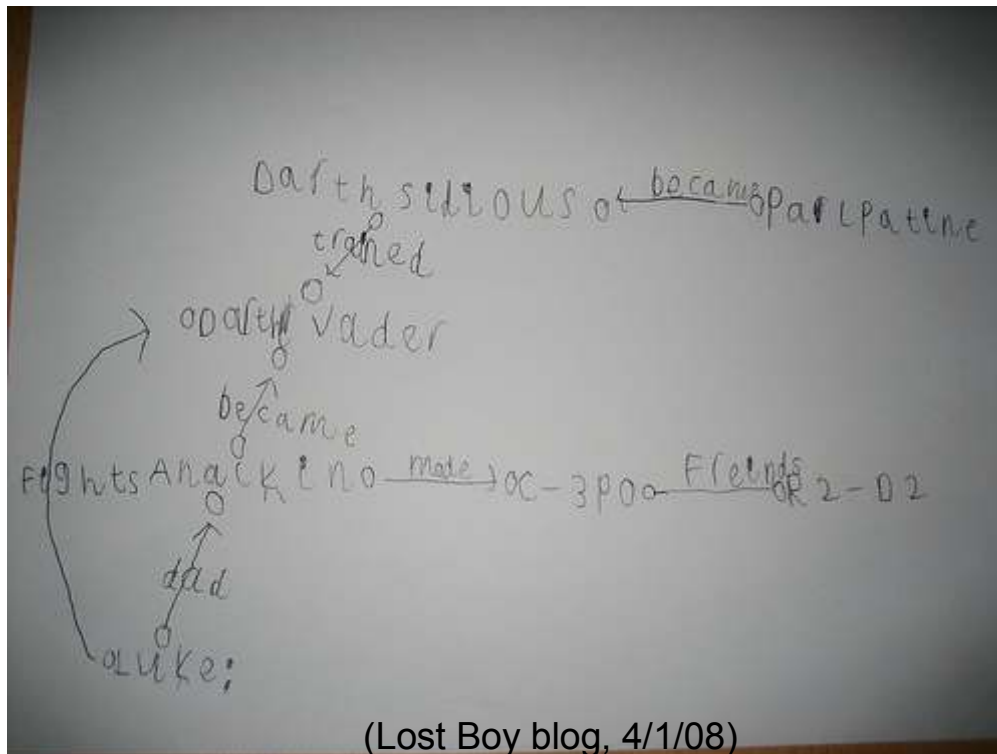 Darth sidious became Parlpatine
traned
Darth vader
became
Fights Anaikin made C-3PO Freinds R2-D2
dad
Luke:
(Lost Boy blog, 4/1/08)